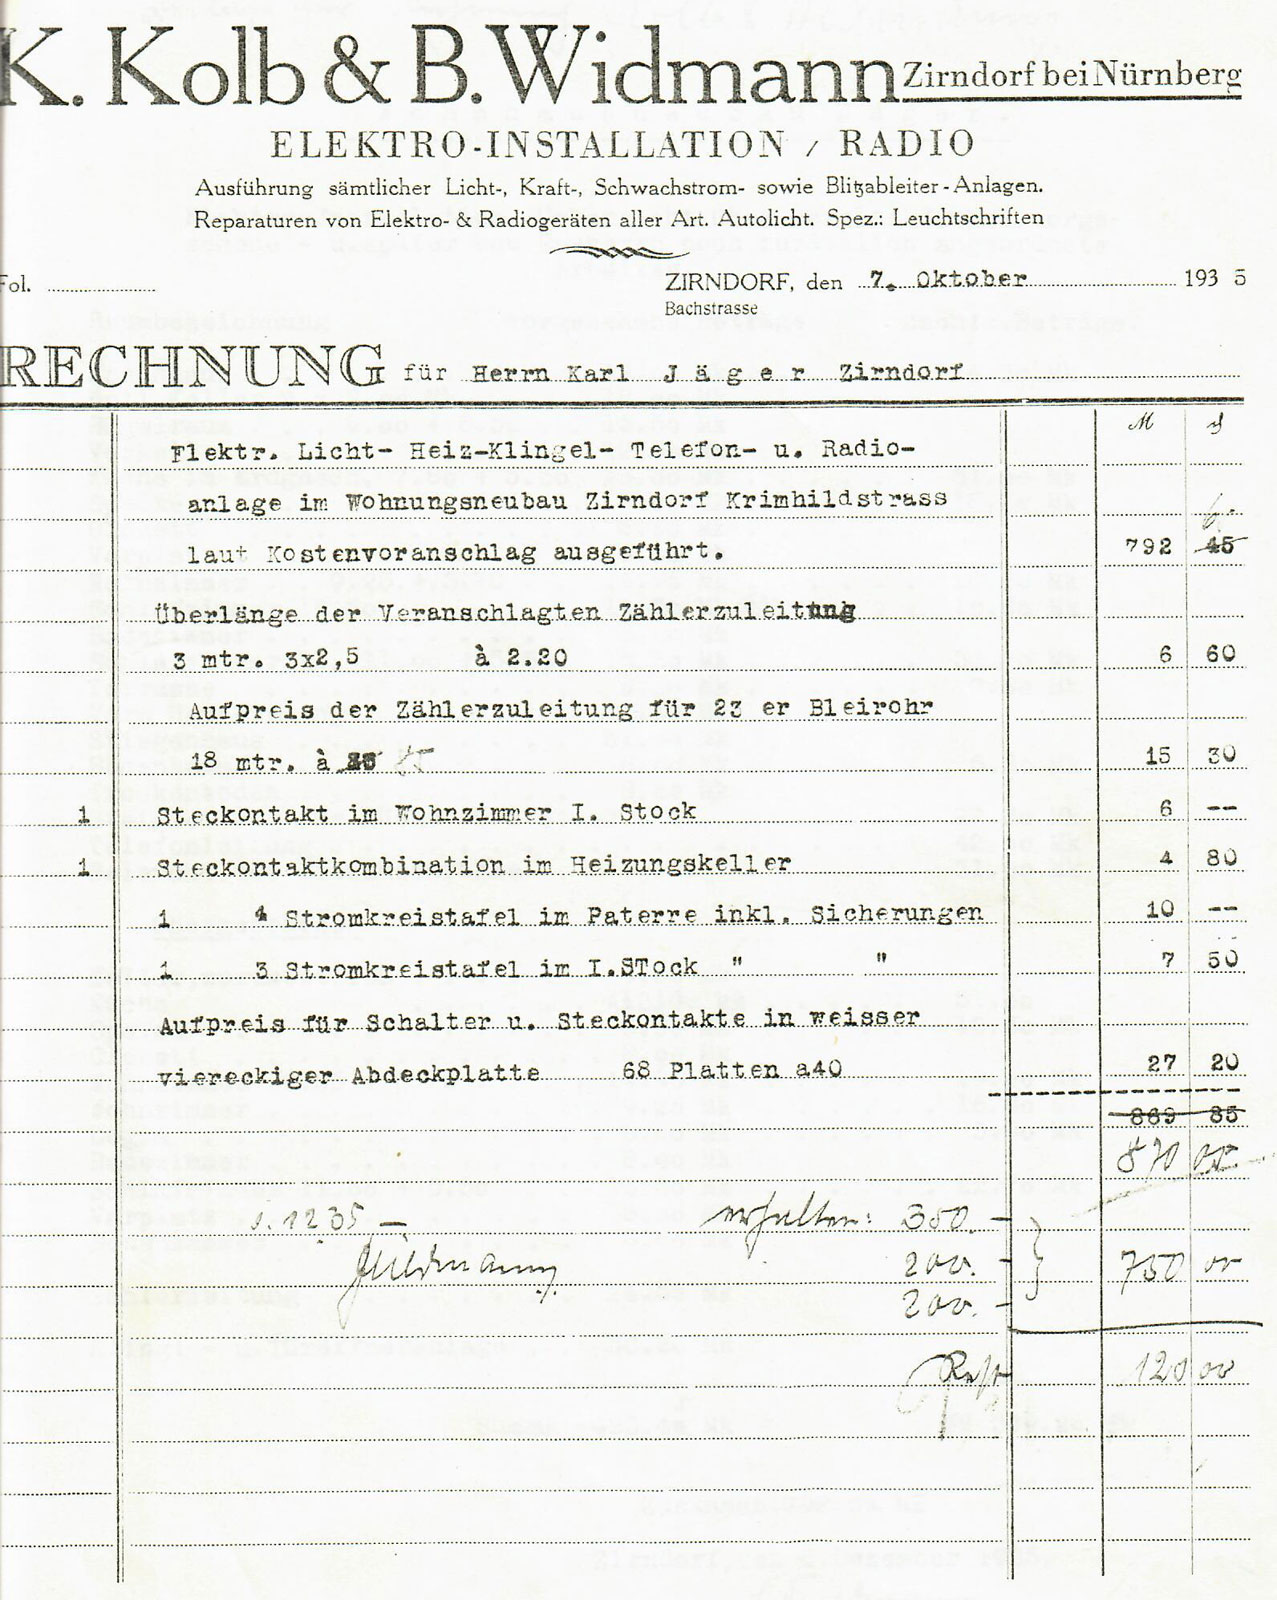 K. Kolb & B. Widmann Zirndorf bei Nürnberg
ELEKTRO-INSTALLATION / RADIO
Ausführung sämtlicher Licht-, Kraft-, Schwachstrom- sowie Blitzableiter-Anlagen.
Reparaturen von Elektro- & Radiogeräten aller Art. Autolicht. Spez.: Leuchtschriften
Fol. ZIRNDORF, den 7. Oktober 193 5
Bachstrasse
RECHNUNG für Herrn Karl J ä g e r Zirndorf
M ₰
Elektr. Licht- Heiz-Klingel- Telefon- u. Radio-
anlage im Wohnungsneubau Zirndorf Krimhildstrass
laut Kostenvoranschlag ausgeführt. 792 45
Überlänge der Veranschlagten Zählerzuleitung
3 mtr. 3x2,5 à 2.20 6 60
Aufpreis der Zählerzuleitung für 23 er Bleirohr
18 mtr. à 85 15 30
1 Steckontakt im Wohnzimmer I. Stock 6 --
1 Steckontaktkombination im Heizungskeller 4 80
1 4 Stromkreistafel im Paterre inkl. Sicherungen 10 --
1 3 Stromkreistafel im I.STock " " 7 50
Aufpreis für Schalter u. Steckontakte in weisser
viereckiger Abdeckplatte 68 Platten a40 27 20
869 85
870
12 35 – erhalten: 350. –
Widmann 200. – 750 00
200. –
Rest 120 00